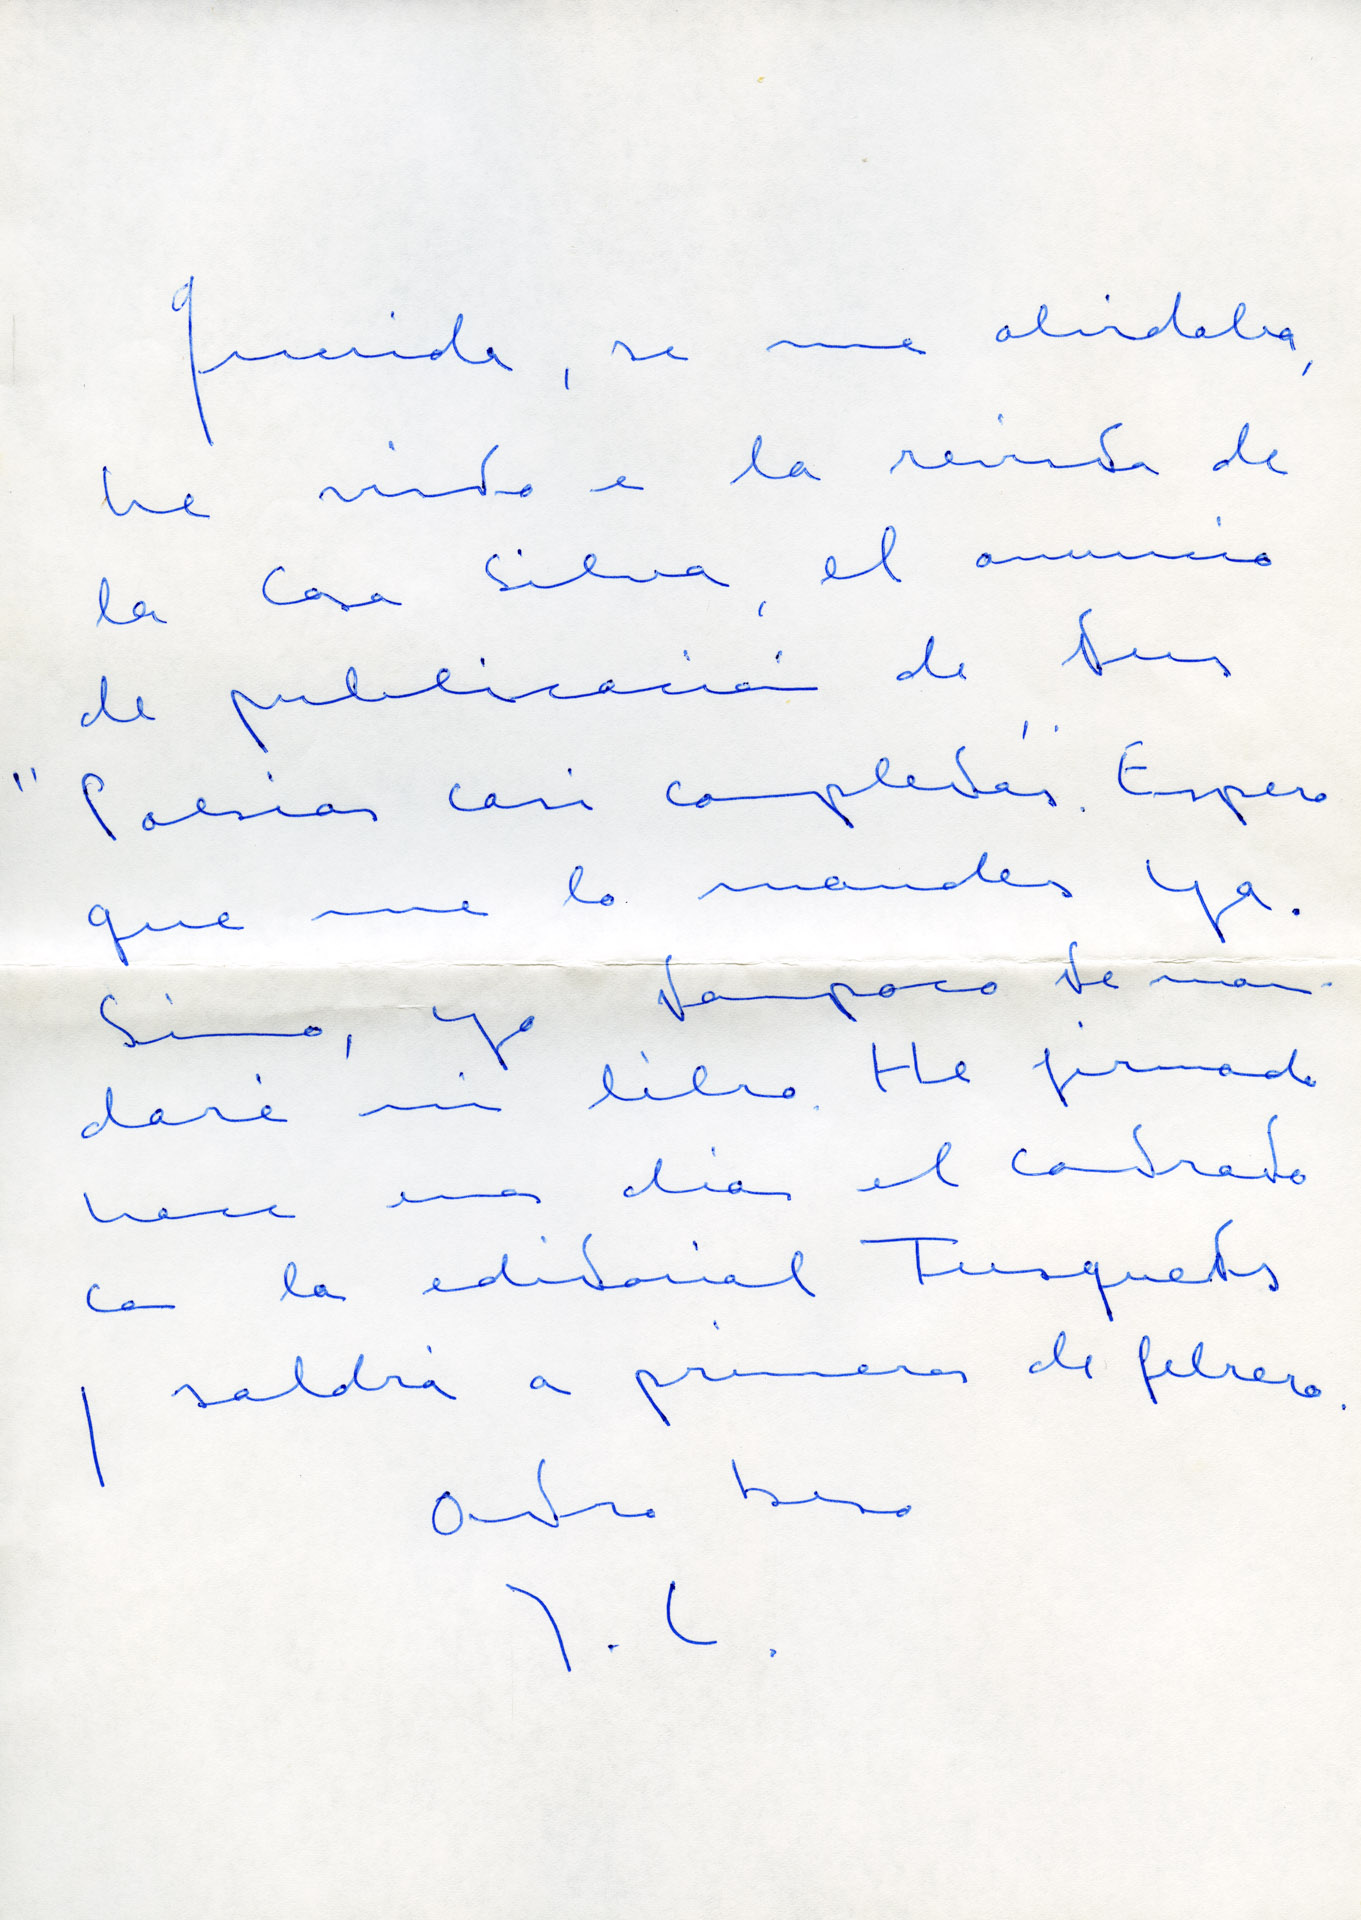 Querida, se me olvidaba,
he visto e la revista de
la Casa Silva, el anuncio
de publicación de tus
"Poesías casi completas". Espero
que me lo mandes ya.
Sino, yo tampoco te man-
daré mi libro. He firmado
hace unos días el contrato
con la editorial Tusquets
y saldrá a primeros de febrero.
Otro beso
J. L.